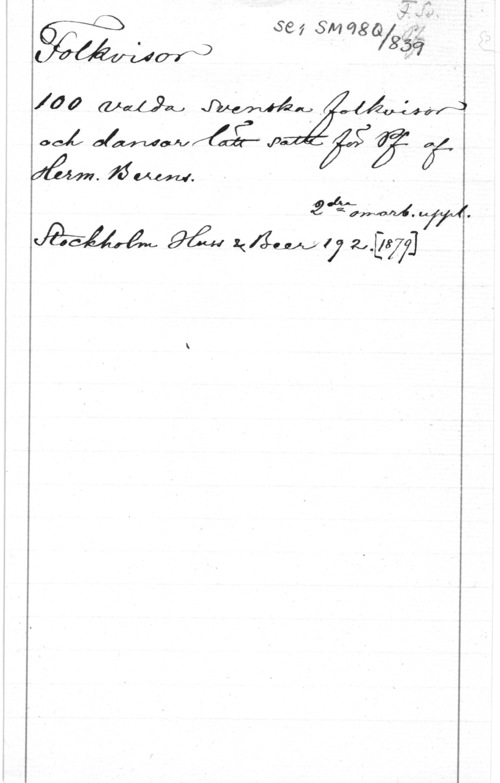 F. Sv.
Pf
Se, SM98Q/839
Folkvisor
100 valda svenska folkvisor
och dansar lätt satte för Pf. af
Herm. Berens.
2dra omarb. uppl.
Stockholm Huss & Beer 192. [1879]